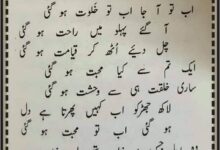 اب تو آ جا اب تو خلوت ہو گئی
آ گئے پہلو میں راحت ہو گئی
چل دیئے اُٹھ کر قیامت ہو گئی
ایک تم سے کیا محبت ہو گئی
ساری خلقت ہی سے وحشت ہو گئی
لاکھ جھڑکو اب کہیں پھرتا ہے دل
ہو گئی اب تو محبت ہو گئی